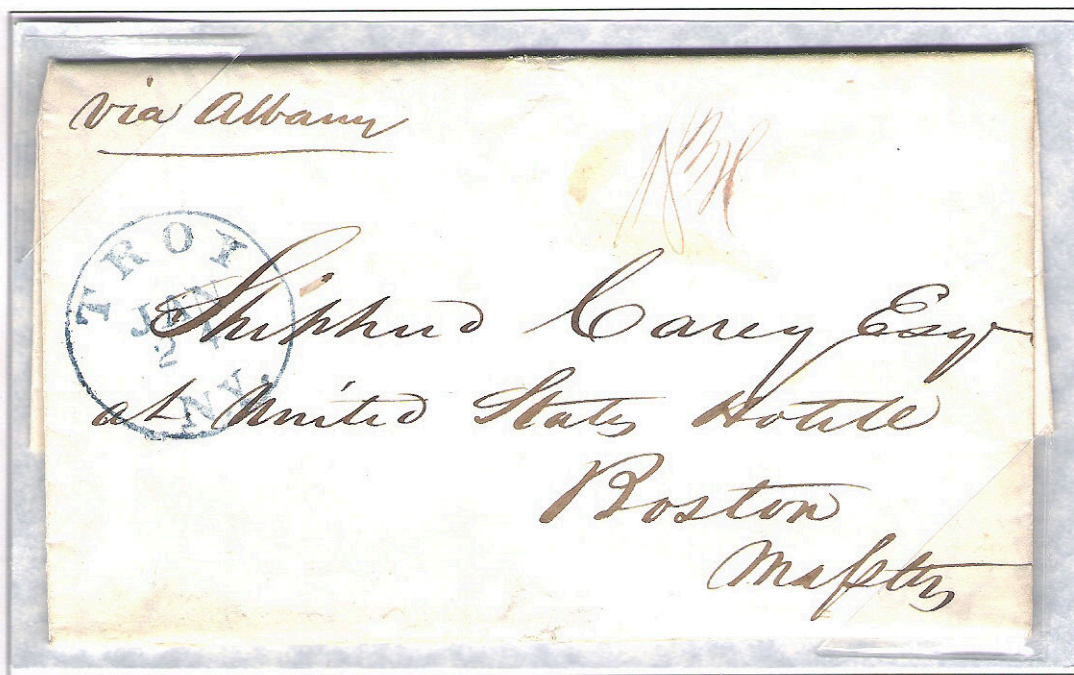 via Albany
TROY
JAN
21
N.Y.
Shiphud Carey Esqr
at United States Hotile
Boston
Masstts